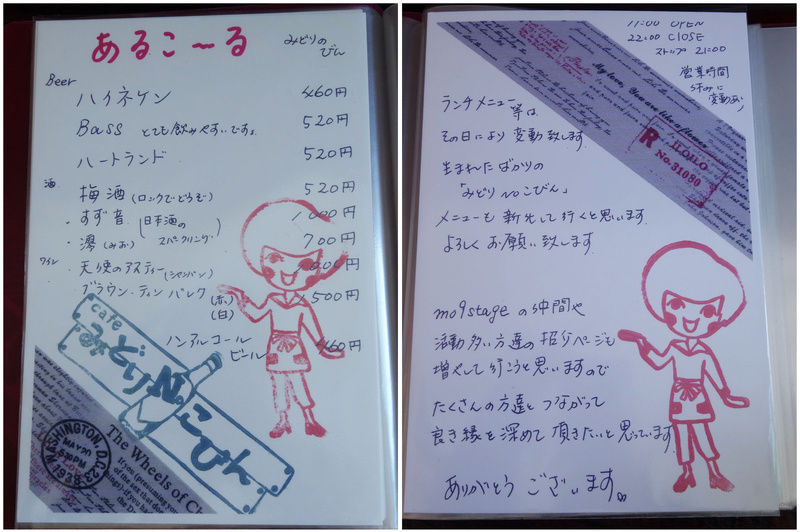 あるこ～る
みどりの
びん
Beer
ハイネケン 460円
Bass とても飲みやすいです。 520円
ハートランド 520円
酒
梅酒(ロックでどうぞ) 520円
・すず音 (日本酒の 1000円
・澪(みお) スパークリング) 700円
ワイン
・天使のアスティー(シャンパン)
ブラウン・ティン バレク (赤) 1500円
(白)
ノンアルコール
ビール 460円
cafe
みどりNo.こびん
WASHINGTON, D.C. 23
MAY 20
5:30 PM
1938
The Wheels of Ch
11:00 OPEN
22:00 CLOSE
ストップ 21:00
営業時間
休みに
変動あり
My love, You are like a flower
R ILOILO
No. 31080
ランチメニュー等は
その日により変動致します。
生まれたばかりの
「みどりNoこびん」
メニューも新化して行くと思います。
よろしくお願い致します。
mo9stageの仲間や
活動多い方達の紹介ページも
増やして行こうと思いますので
たくさんの方達とつながって
良き縁を深めて頂きたいと思っています。
ありがとうございます。